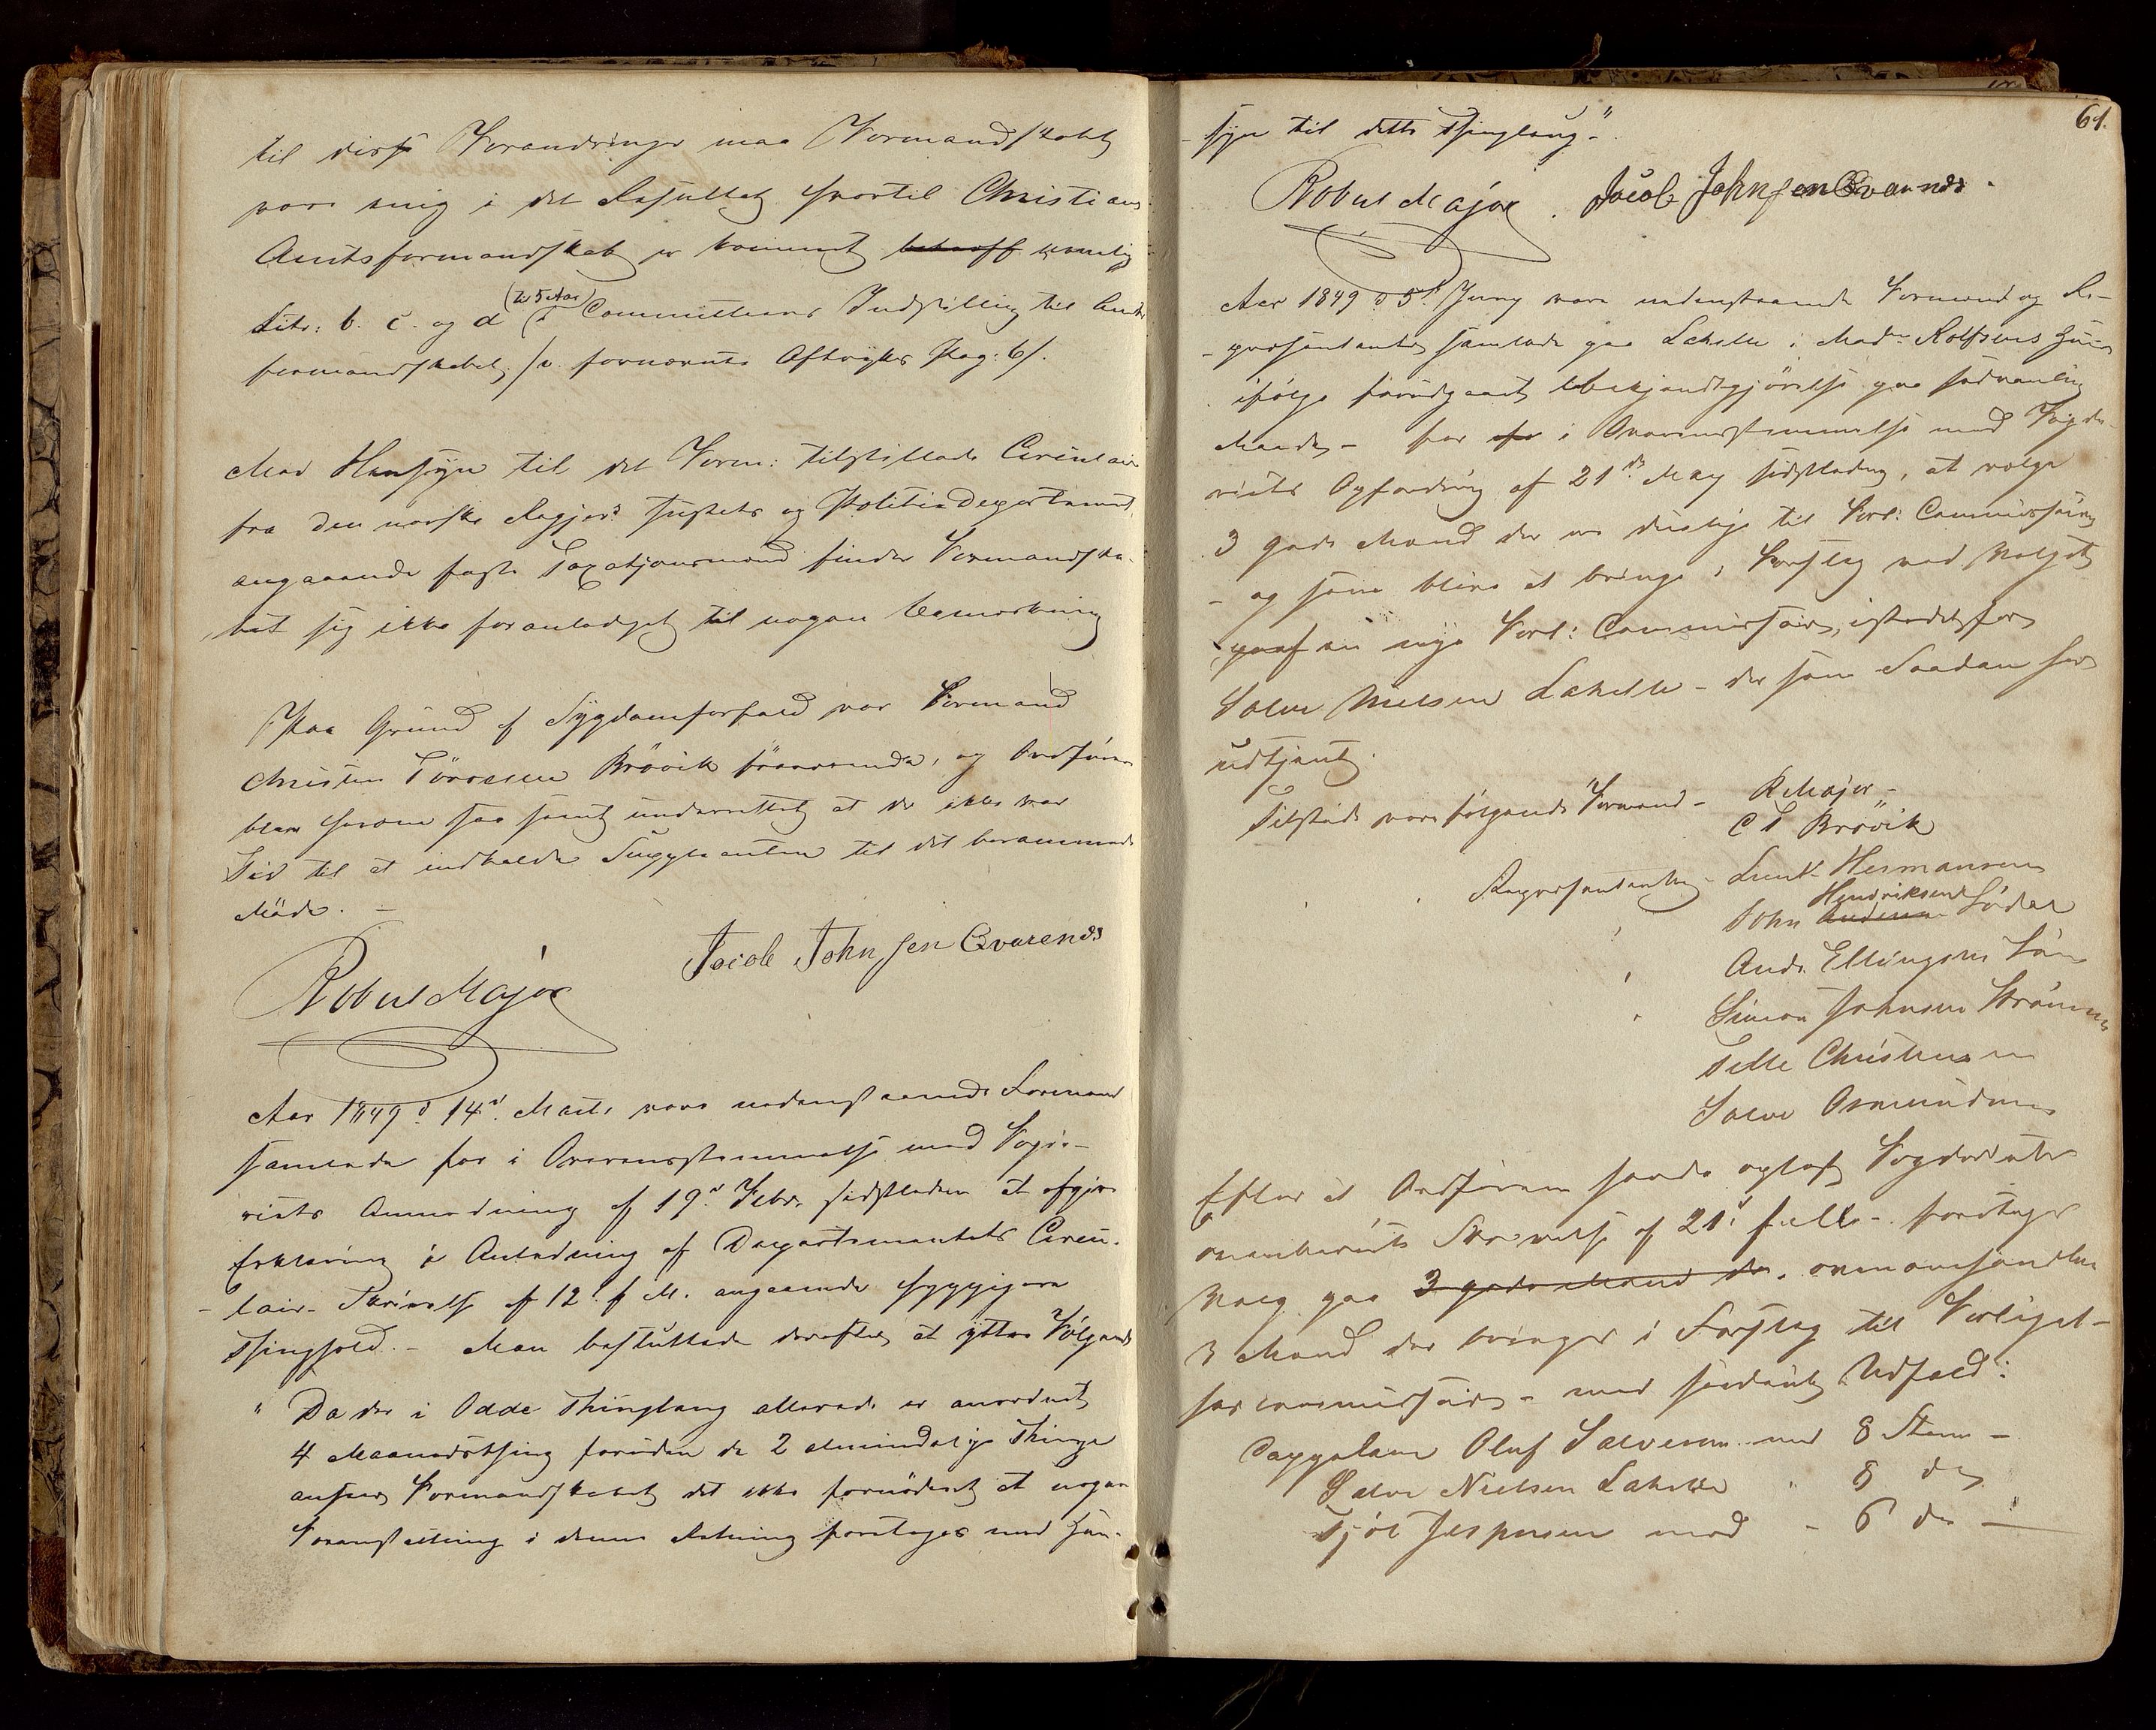 til disse Forandringer maa Formandskabet
være enig i det Resultat hvortil Christians
Amtsformandskab er kommet betræff nemlig
Litr: b. c. og d (Zv 5 Aar) i Committeens Indstilling til Amts
formandskabet, /v. fornævnte Aftryks Pag: 6/.
Med Hensyn til det Form: tilstillede Circulair
fra den norske Regjer: Justits og Politie Departement,
angaaende faste Taxatjonsmænd finder Formandska-
bet sig ikke foranlediget til nogen Bemærkning
Paa Grund af Sygdomsforfald var Formand
Christen Törresen Brövik fraværende, og Ordföreren
blev herom saa seent underrettet at der ikke var
Tid til at indkalde Suppleanten til det berammede
Möde. -
Robert Major
Jacob Johnsen Qvarenes
Aar 1849 d 14d. Marts vare undenstaaende Formænd
samlede for i Overensstemmelse med Foge-
riets Anmodning af 19d. Febr. sidstleden at afgive
Erklæring i Anledning af Departementets Circu-
- lair- Skrivelse af 12 f M. angaaende hyppigere
Thinghold. - Man besluttede derefter at yttre Fölgende
" Da der i Odde Thinglaug allerede er anordnet
4 Maanedsthing foruden de 2 almindelige Thinge
anseer Formandskabet det ikke fornödent at nogen
Foranstaltning i denne Retning foretages med Hen-
61.
- syn til dette Thinglaug."
Robert Major. Jacob Johnsen Qvarenes.
Aar 1849 d 5t Juny vare undenstaaende Formænd og Re-
- præsentanter samlede paa Lahelle i Mad. Rolfsens Huus
ifölge forudgaaet Bekjendtgjörelse paa sædvanlig
Maade - for i Overensstemmelse med Fogde-
riets Opfordring af 21de May sidstleden, at vælge
3 gode Mænd der ere duelige til Forl: Commissairer
- og som blive at bringe i Forslag ved Valget
paa en nye Forl: Commissair, istedetfor
Salve Nielsen Lahelle - der som Saadan har
udtjent.
Tilstede vare fölgende Formænd - R Major -
C T Brövik
Repræsentanter - Lieut. Hermansen
John Andersen Hendriksen
Ands. Ellingsen
Simon Johnsen Strömme
Tellef Christensen
Salve Osmundsen
Efter at Ordföreren havde oplæst Fogderiets
ovenberörte Skrivelse af 21d. f. M. - foretoges
Valg paa 3 gode Mænd der. ovenomhandlede
3 Mænd der bringes i Forslag til Forligel-
ses commissair - med saadant Udfald:
Cappelane Oluf Salvesen med 8 Stem -
Salve Nielsen Lahelle " 8 do
Tjöl Jespersen med - 6 do -